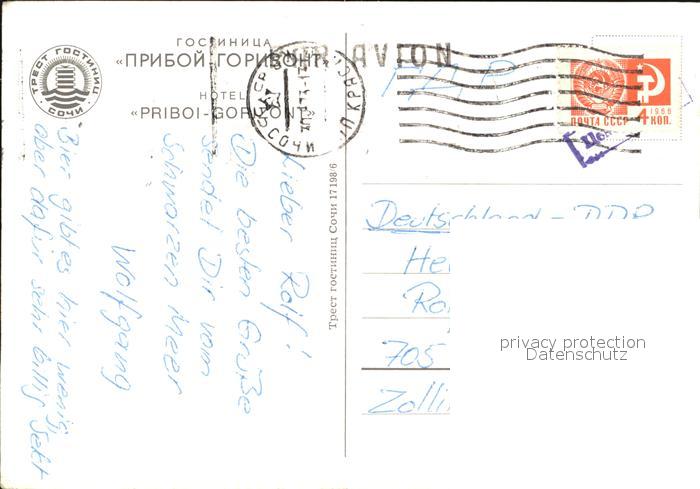 ТРЕСТ ГОСТИНИЦ
СОЧИ
ГОСТИНИЦА
«ПРИБОЙ-ГОРИЗОНТ»
HOTEL
«PRIBOI-GORIZONT»
Lieber Rolf!
Die besten Grüße
sendet Dir vom
Schwarzen Meer
Wolfgang
"Bier gibt es hier wenig,
aber dafür sehr billig Sekt
Трест гостиниц Сочи 17198/6
PAR AVION
СССР
СОЧИ
ГДР
1966
ПОЧТА СССР 4 КОП.
Deutschland - DDR
He
Ro
705
Zolli
privacy protection
Datenschutz